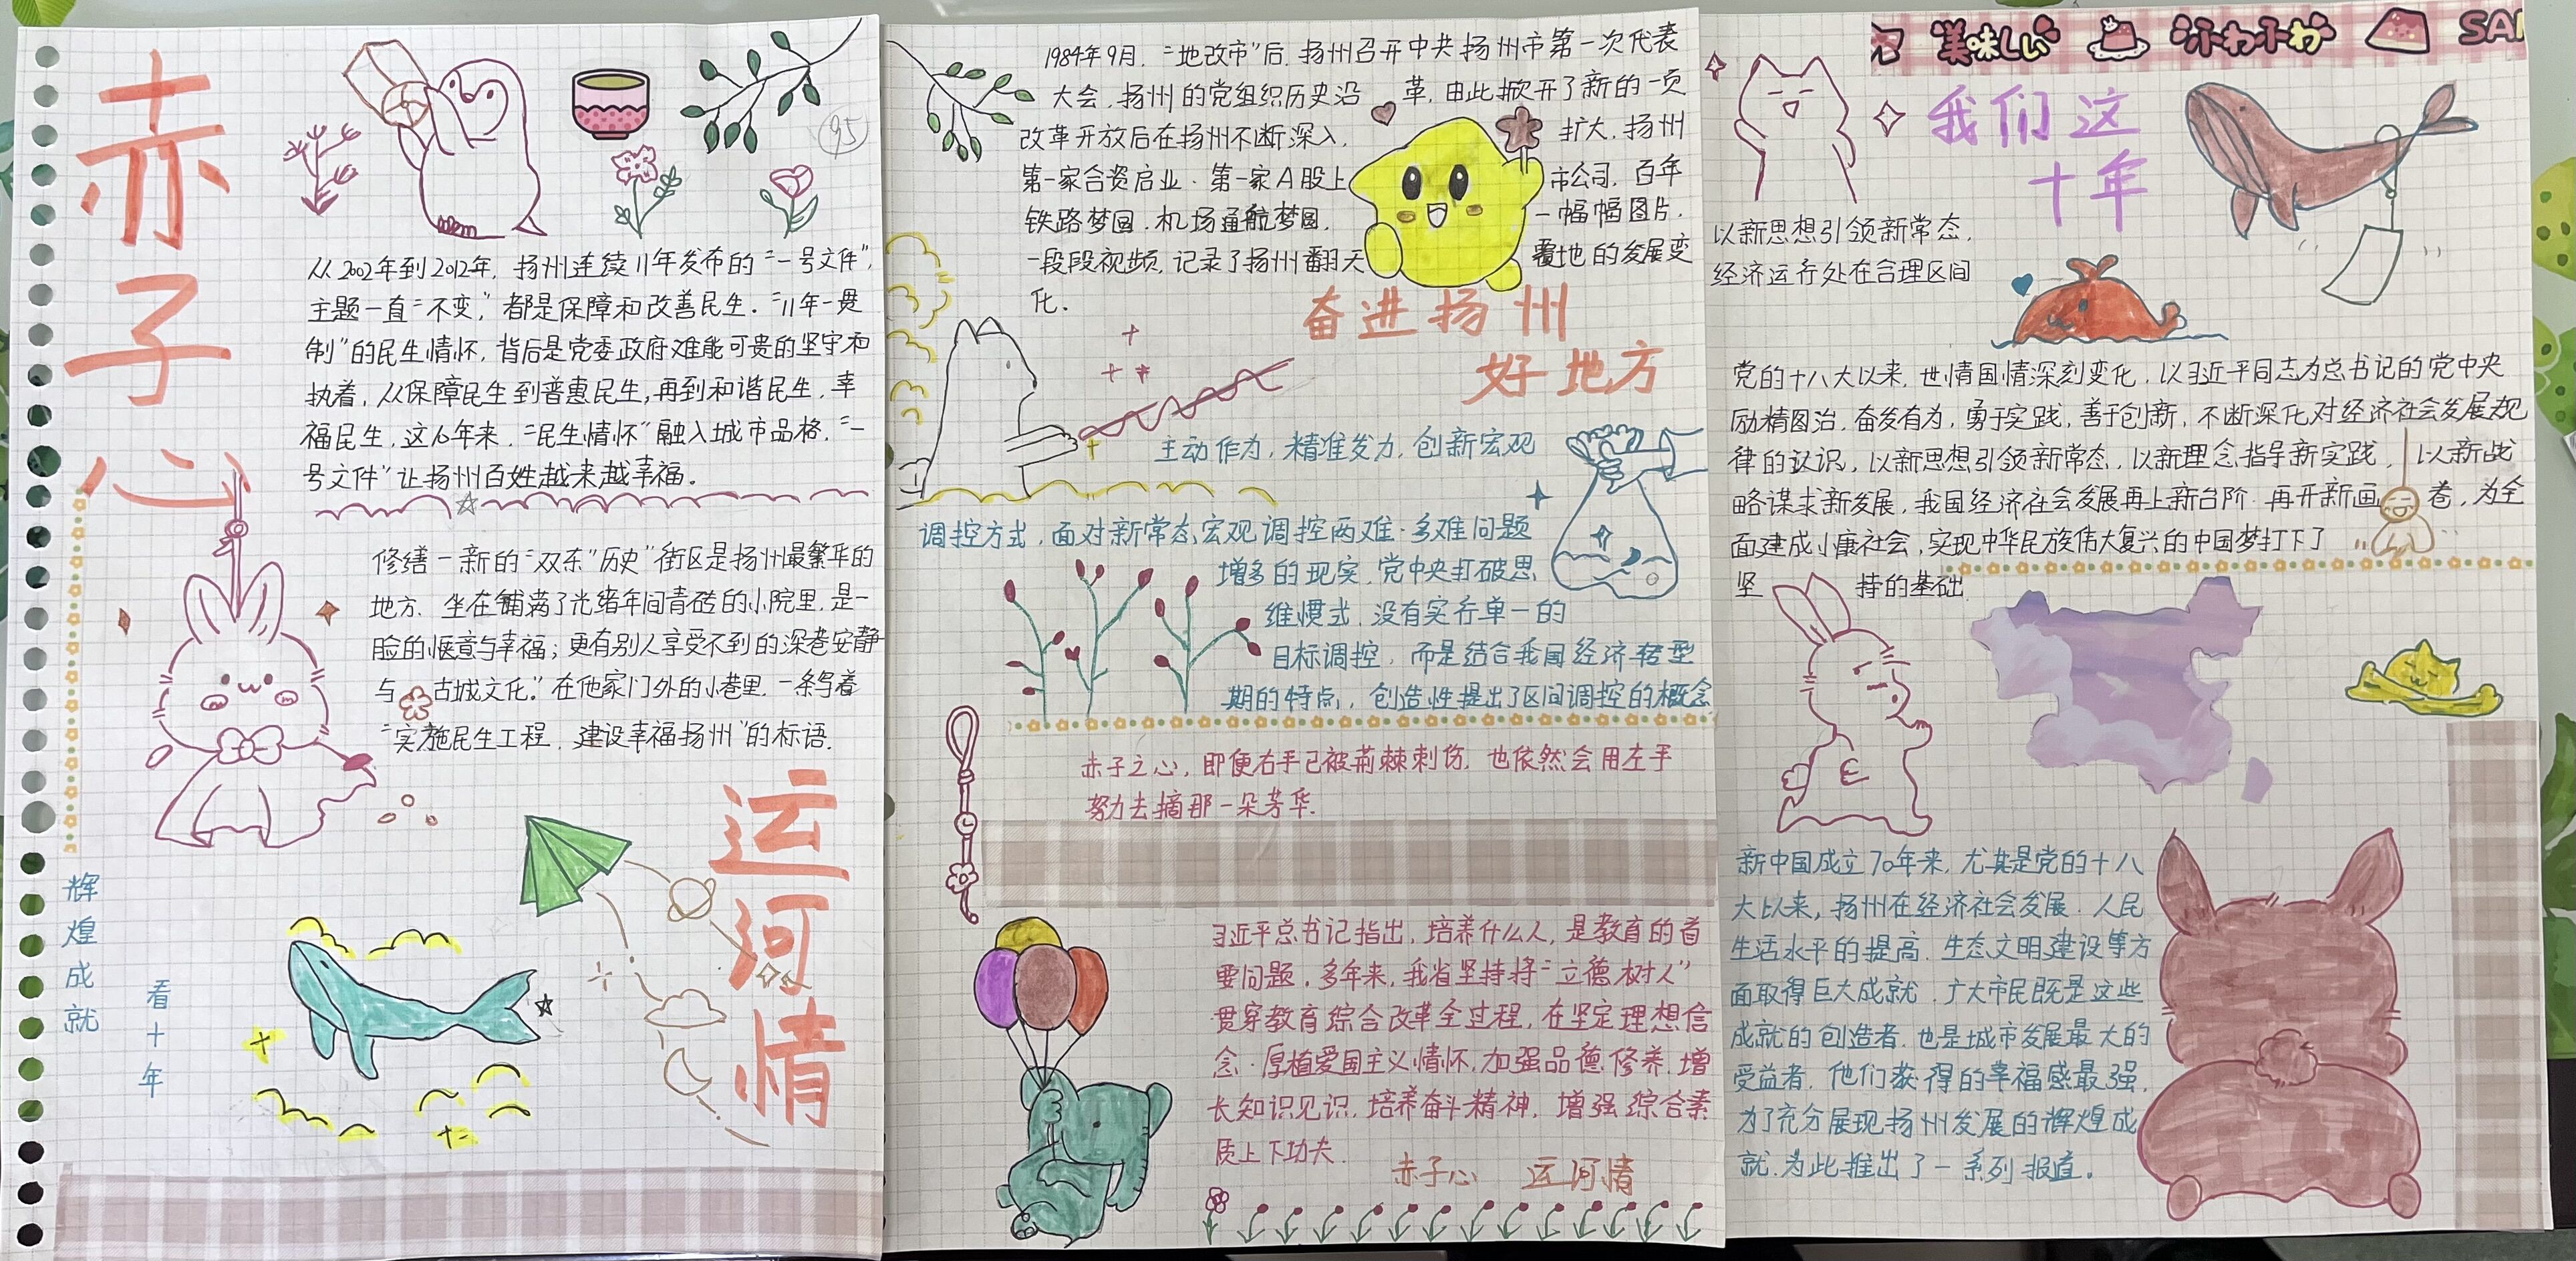 赤子心
95
从2002年到2012年,扬州连续11年发布的“一号文件”,
主题一直“不变”,都是保障和改善民生.“11年一贯
制”的民生情怀,背后是党委政府难能可贵的坚守和
执着,从保障民生到普惠民生,再到和谐民生,幸
福民生,这16年来,“民生情怀”融入城市品格,“一
号文件”让扬州百姓越来越幸福.
修缮一新的“双东”历史”街区是扬州最繁华的
地方.坐在铺满了光绪年间青砖的小院里,是一
脸的惬意与幸福;更有别人享受不到的深巷安静
与古城文化.”在他家门外的小巷里,一条写着
“实施民生工程,建设幸福扬州”的标语.
运河情
辉煌成就
看十年
1984年9月,“地改市”后,扬州召开中共扬州市第一次代表
大会,扬州的党组织历史沿革,由此掀开了新的一页
改革开放后在扬州不断深入,扩大,扬州
第一家合资启业.第一家A股上市公司,百年
铁路梦圆.机场通航梦圆,一幅幅图片,
一段段视频,记录了扬州翻天覆地的发展变
化.
奋进扬州
好地方
主动作为,精准发力,创新宏观
调控方式,面对新常态宏观调控两难.多难问题
增多的现实,党中央打破思
维惯式,没有实行单一的
目标调控,而是结合我国经济转型
期的特点,创造性提出了区间调控的概念
赤子之心,即便右手已被荊棘刺伤,也依然会用左手
努力去摘那一朵芳华.
习近平总书记指出,培养什么人,是教育的首
要问题,多年来,我省坚持将“立德树人”
贯穿教育综合改革全过程,在坚定理想信
念.厚植爱国主义情怀,加强品德修养,增
长知识见识,培养奋斗精神,增强综合素
质上下功夫.
赤子心 运河情
美味しい
SA
我们这
十年
以新思想引领新常态,
经济运行处在合理区间
党的十八大以来,世情国情深刻变化,以习近平同志为总书记的党中央
励精图治,奋发有为,勇于实践,善于创新,不断深化对经济社会发展规
律的认识,以新思想引领新常态,以新理念指导新实践,以新战
略谋求新发展,我国经济社会发展再上新台阶.再开新画卷,为全
面建成小康社会,实现中华民族伟大复兴的中国梦打下了
坚持的基础
新中国成立70年来,尤其是党的十八
大以来,扬州在经济社会发展.人民
生活水平的提高.生态文明建设等方
面取得巨大成就.广大市民既是这些
成就的创造者,也是城市发展最大的
受益者,他们获得的幸福感最强,
为了充分展现扬州发展的辉煌成
就.为此推出了一系列报道。